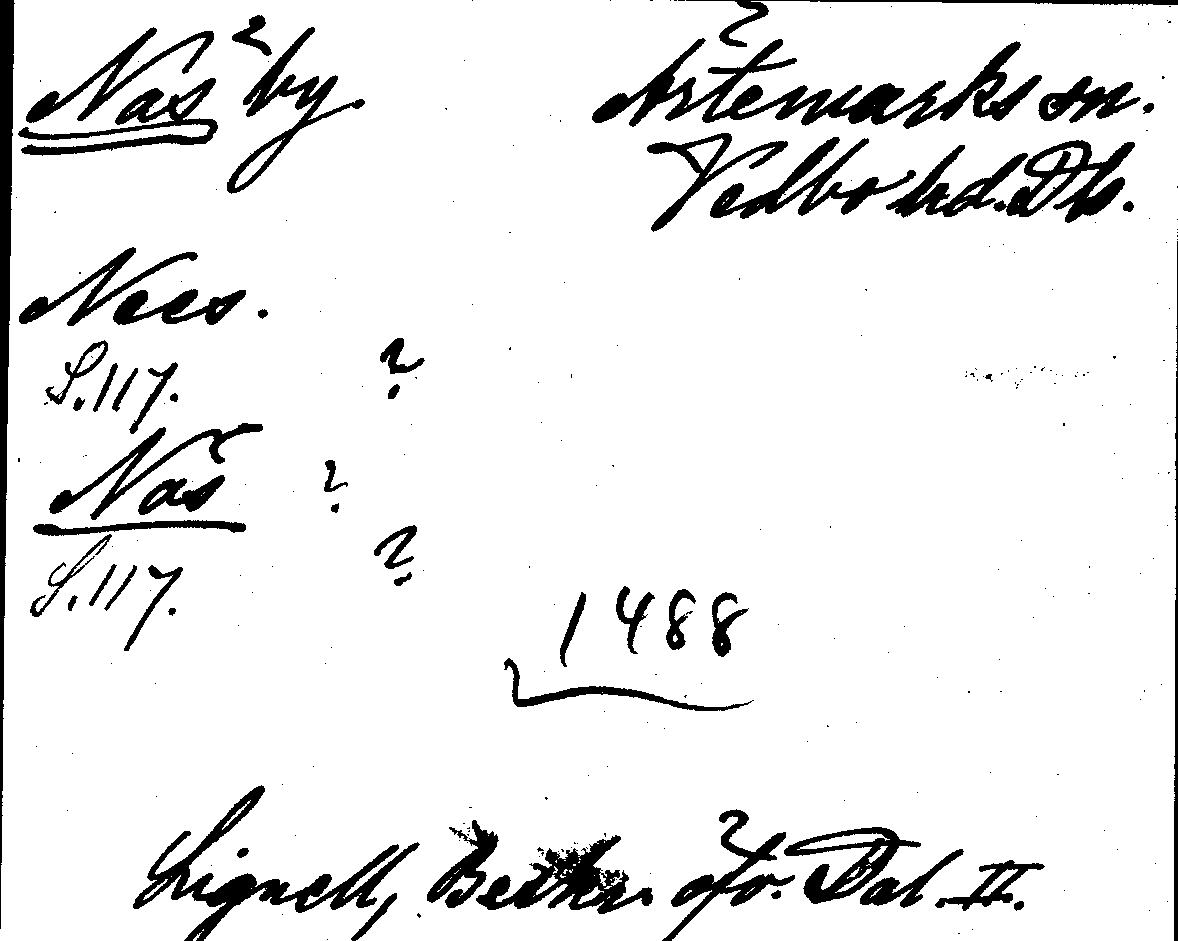 Näs by. Ärtemarks sn.
Vedbo hd. Dls.
Nees.
S. 117. ?
Näs ?
S. 117. ?
1488
Lignell, Beskr. öfv. Dal. II.